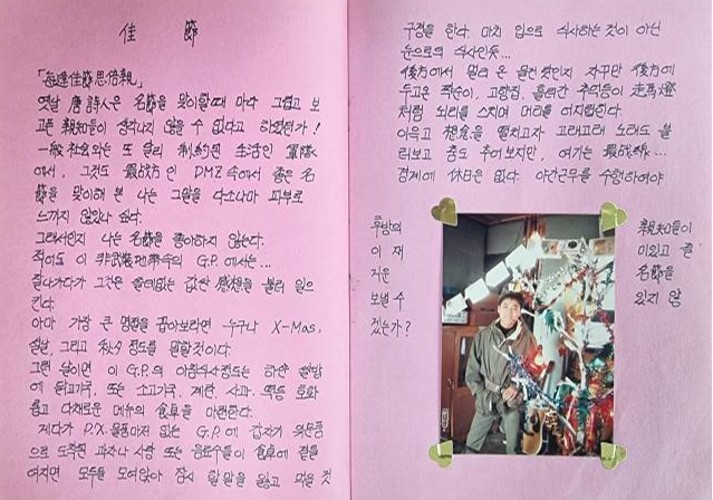 佳 節
「每逢佳節思倍親」
옛날 唐詩人은 名節을 맞이할때 마다 그립고 보
고픈 親知들이 생각나지 않을 수 없다고 하였던가!
一般社会와는 또 달리 制約된 生活인 軍隊
에서, 그것도 最战方인 DMZ 속에서 좋은 名
節을 맞이해 본 나는 그말을 다소나마 피부로
느끼지 않았나 싶다.
그래서인지 나는 名節을 좋아하지 않는다.
적어도 이 非武裝地帶속의 G.P. 에서는…
잘나가다가 그것은 쓸데없는 값싼 感想을 불러 일으
킨다.
아마 가장 큰 명절을 꼽아보라면 누구나 X-Mas,
설날, 그리고 秋夕 정도를 말할것이다.
그런 날이면 이 G.P.의 아침식사정도는 하얀 쌀밥
에 닭고기국, 또는 소고기국, 계란, 사과, 떡등 호화
롭고 다채로운 메뉴의 食卓을 마련한다.
게다가 P.X. 물품마저 없는 G.P. 에 갑자기 위문품
으로 도착된 과자나 사탕 또는 음료수들이 食卓에 곁들
여지면 모두들 모여앉아 잠시 할말을 잃고 먹을 것
구경을 한다. 마치 입으로 식사하는것이 아닌
눈으로의 식사인듯…
後方에서 멀리 온 물건 탓인지 자꾸만 後方에
두고온 짝순이, 고향집, 흘러간 추억등이 走馬燈
처럼 뇌리를 스치며 머리를 어지럽힌다.
이윽고 想念을 떨치고자 고래고래 노래도 불
러보고 춤도 추어보지만, 여기는 最战線…
경계에 休日은 없다. 야간근무를 수행하여야
후방의 親知들이
이 재 미있고 즐
거운 名節을
보낼 수 있지 않
겠는가?